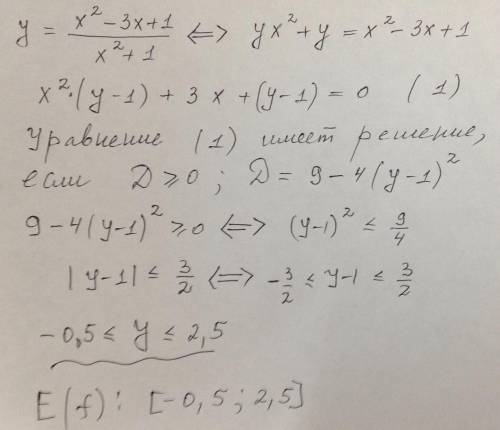 y = (x² - 3x + 1)/(x² + 1) <=> yx² + y = x² - 3x + 1
x²·(y-1) + 3x + (y-1) = 0 (1)
Уравнение (1) имеет решение,
если D ≥ 0; D = 9 - 4(y-1)²
9 - 4(y-1)² ≥ 0 <=> (y-1)² ≤ 9/4
|y-1| ≤ 3/2 <=> -3/2 ≤ y-1 ≤ 3/2
-0,5 ≤ y ≤ 2,5
E(f): [-0,5; 2,5]